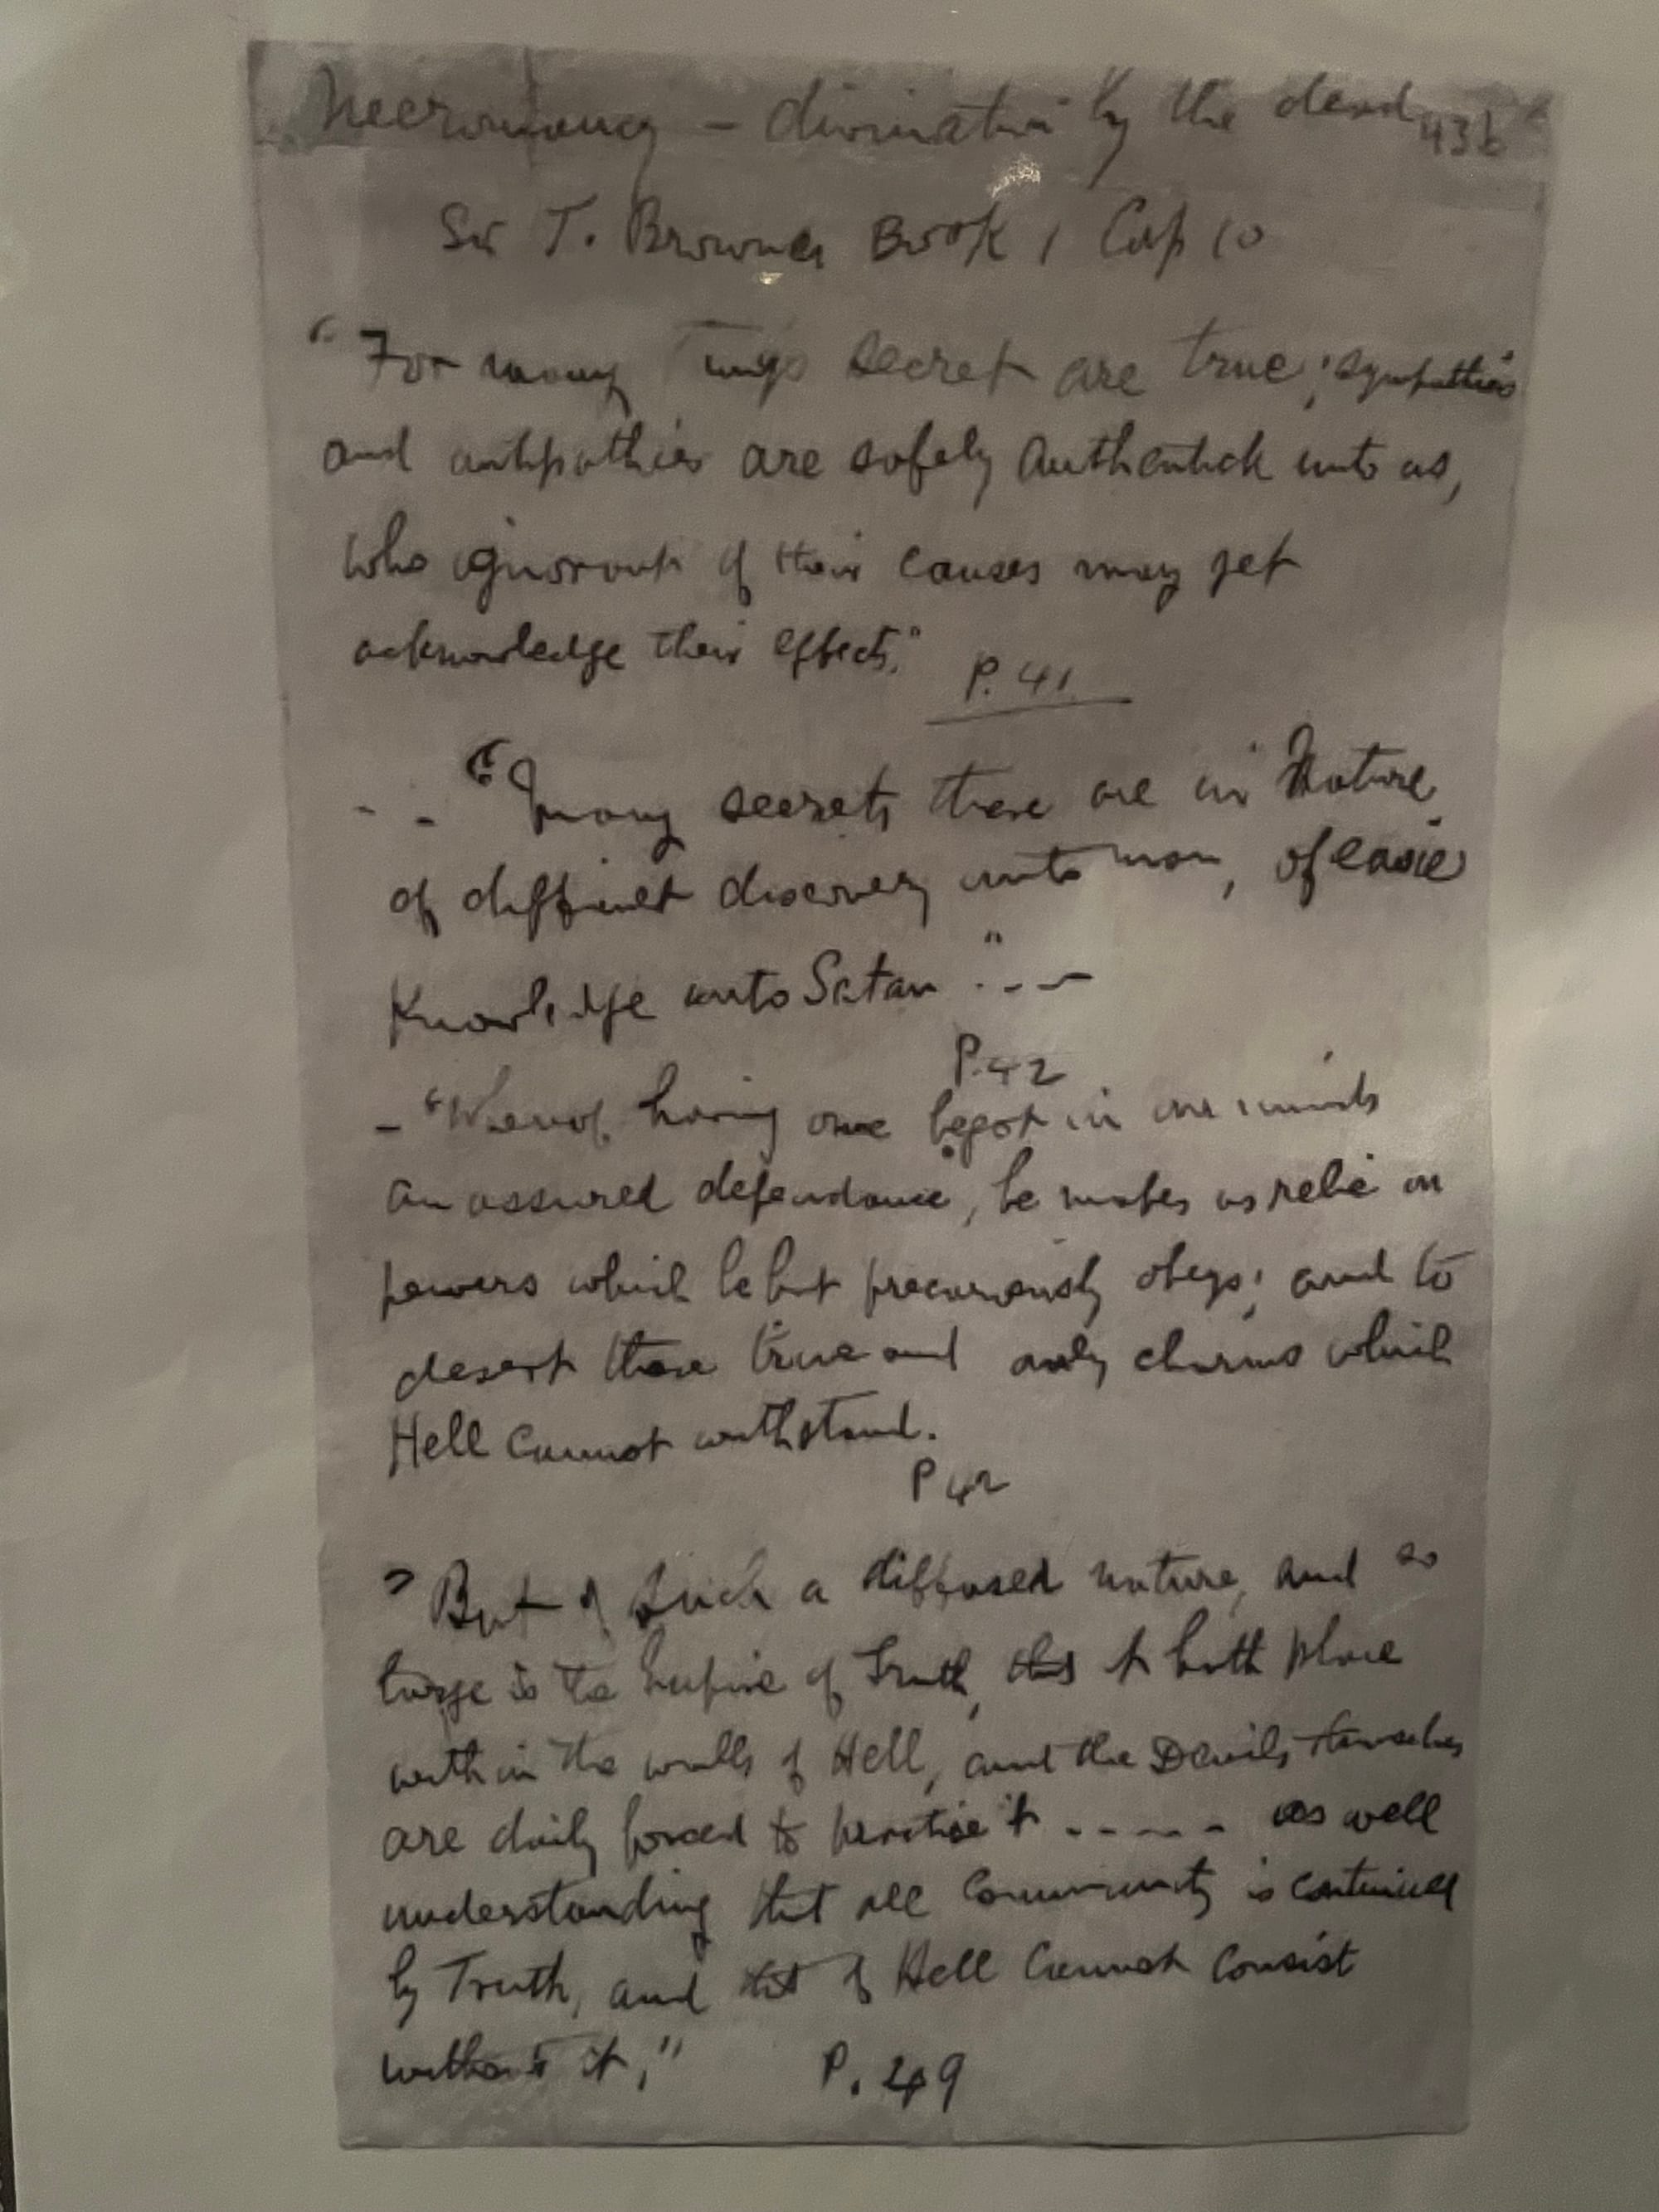 Necromancy - divination by the dead 436
Sir T. Browne Book 1 Cap 10
"For many Things secret are true; sympathies
and antipathies are safely authentick unto us,
who ignorant of their causes may yet
acknowledge their effects." P. 41
- - "Many secrets there are in Nature
of difficult discovery unto man, of easie
Knowledge unto Satan" - - -
P. 42
- "Whereof having once begot in our minds
an assured dependance, he makes us relie on
powers which he but precariously obeys; and to
desert those true and only charms which
Hell cannot withstand.
P 42
"But of such a diffused nature, and so
large is the Empire of Truth, that it hath place
within the walls of Hell, and the Devils themselves
are daily forced to practise it - - - - - as well
understanding that all Community is continued
by Truth, and that of Hell cannot consist
without it," P. 49